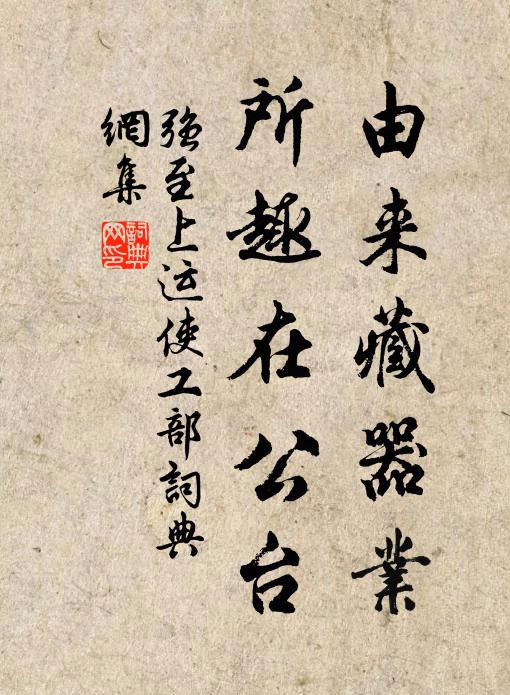 由来藏器業
所趣在公台
強至上运使工部詞典
網集
詞典
网印